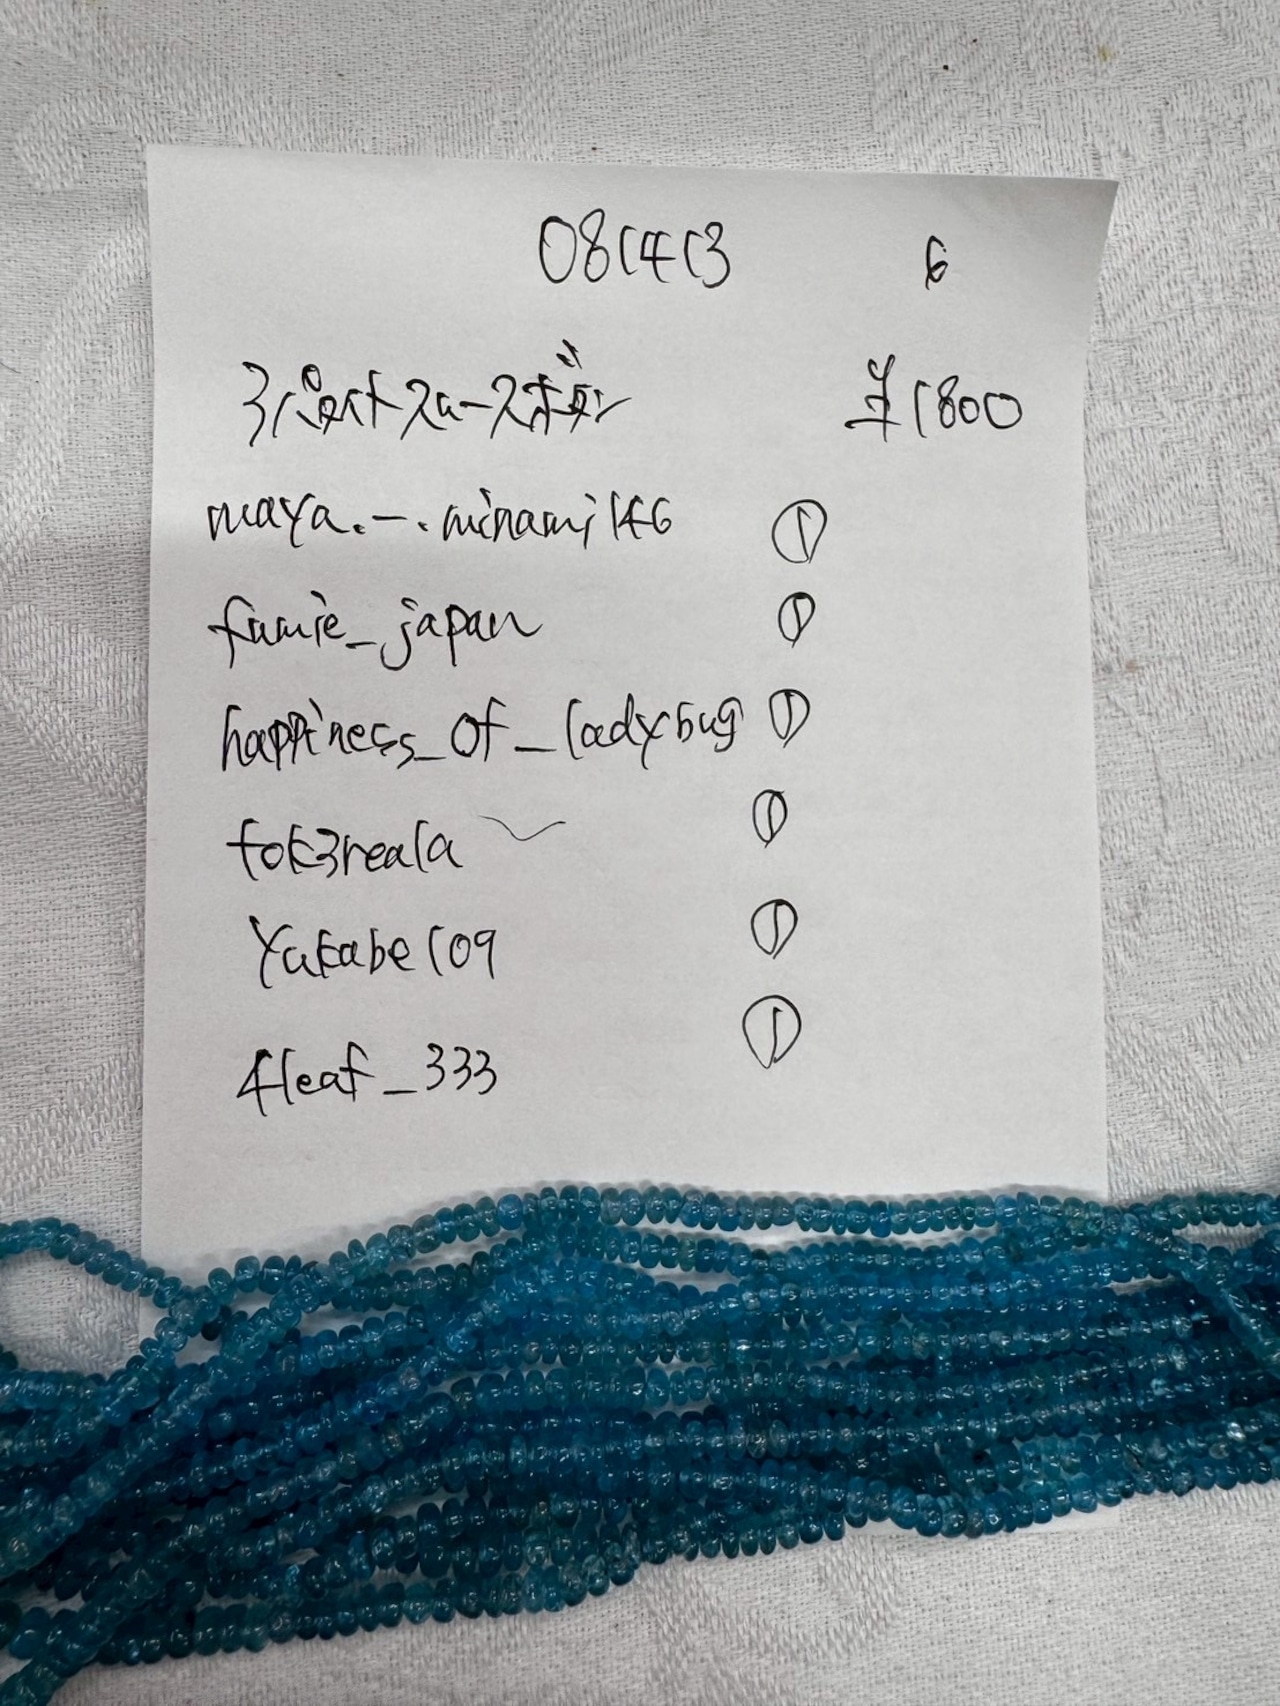 081413 6
アパタイトスムースボタン ¥1800
maya._.minami146 ①
fumie_japan ①
happiness_of_ladybug ①
tok3reala ①
yukabe109 ①
4leaf_333 ①